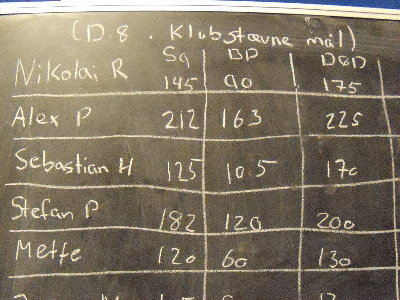 (D.8. Klubstævne mål)
Sq BP DØD
Nikolai R 145 90 175
Alex P 212 163 225
Sebastian H 125 105 170
Stefan P 182 120 200
Mette 120 60 130